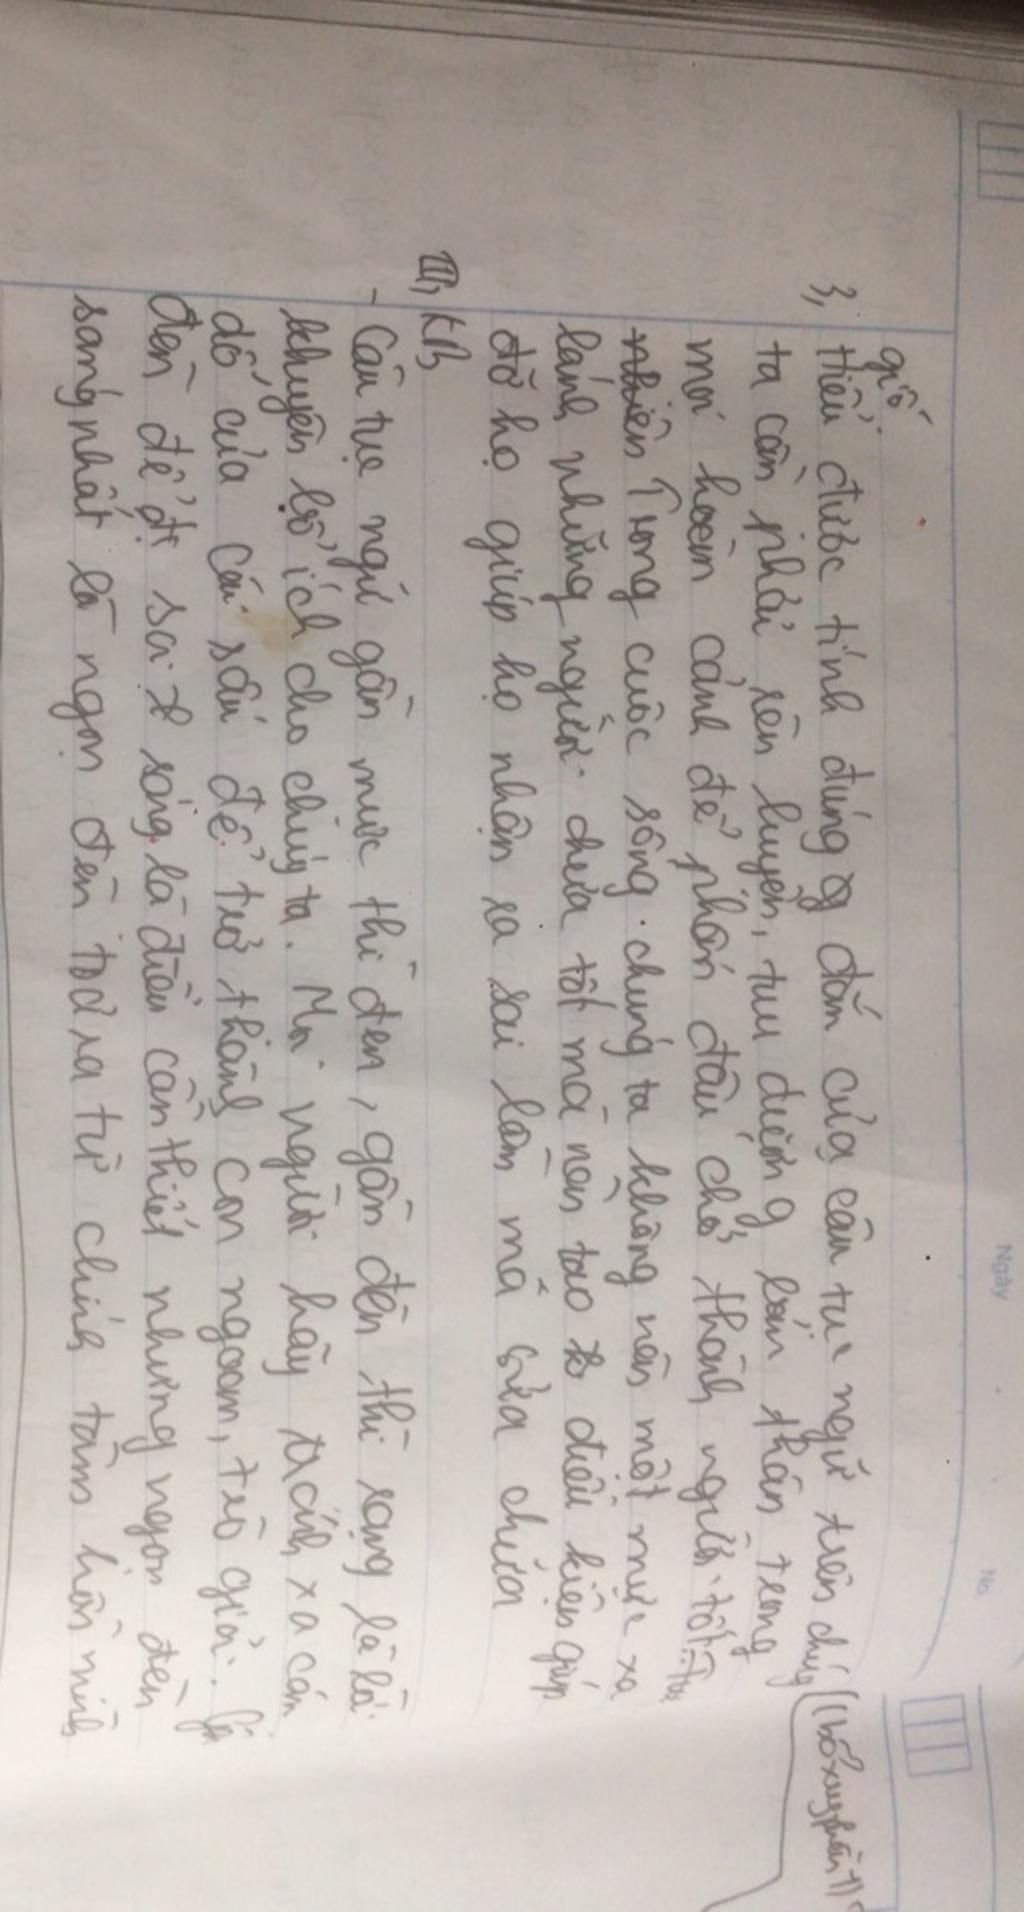 Ngày
No.
giố
3, Hiểu được tính đúng đắn của câu tục ngữ trên chúng ((bổ xung phần 1)
ta cần phải rèn luyện, tu dưỡng bản thân trong
mọi hoàn cảnh để phấn đấu chở thành người tốt.
Trong cuộc sống chúng ta không nên một mực xa
lánh những người chưa tốt mà nên tạo điều kiện giúp
đỡ họ giúp họ nhận ra sai lầm mà sửa chữa
III, KB
- Câu tục ngữ gần mực thì đen, gần đèn thì sạng là lời
khuyên bổ ích cho chúng ta. Mọi người hãy tránh xa cám
dỗ của cái sấu để trở thành con ngoan, trò giỏi.
đèn để đi soi sáng là điều cần thiết nhưng ngọn đèn
sáng nhất là ngọn đèn toả ra từ chính tâm hồn mình